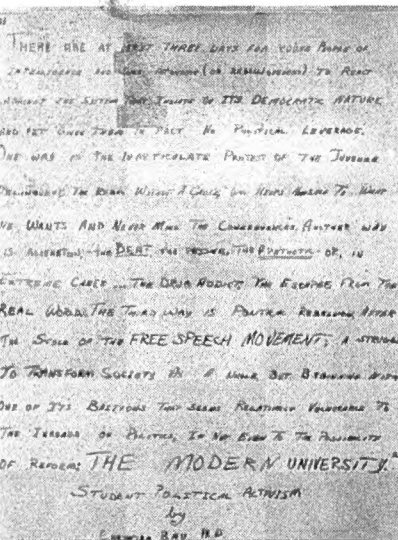 THERE ARE AT LEAST THREE WAYS FOR YOUNG PEOPLE OF
INTELLIGENCE AND (OR REBELLIOUSNESS) TO REACT
AGAINST THE SYSTEM THAT INSISTS ON ITS DEMOCRATIC NATURE
AND YET GIVES THEM IN FACT NO POLITICAL LEVERAGE.
ONE WAY IS THE INARTICULATE PROTEST OF THE JUVENILE
DELINQUENT, THE REBEL WITHOUT A CAUSE, HELPS HIMSELF TO WHAT
HE WANTS AND NEVER MIND THE CONSEQUENCES. ANOTHER WAY
IS ALIENATION, THE BEAT, THE THE OR, IN
EXTREME CASES ... THE DRUG ADDICT, THE ESCAPEE FROM THE
REAL WORLD. THE THIRD WAY IS POLITICAL REBELLION AFTER
THE STYLE OF THE FREE SPEECH MOVEMENT; A STRUGGLE
TO TRANSFORM SOCIETY AS A WHOLE BUT BEGINNING WITH
ONE OF ITS BASTIONS THAT SEEMS RELATIVELY VULNERABLE TO
THE INROADS OF POLITICS, IF NOT EVEN TO THE POSSIBILITY
OF REFORM: THE MODERN UNIVERSITY."
STUDENT POLITICAL ACTIVISM
by
RAY, M.D.